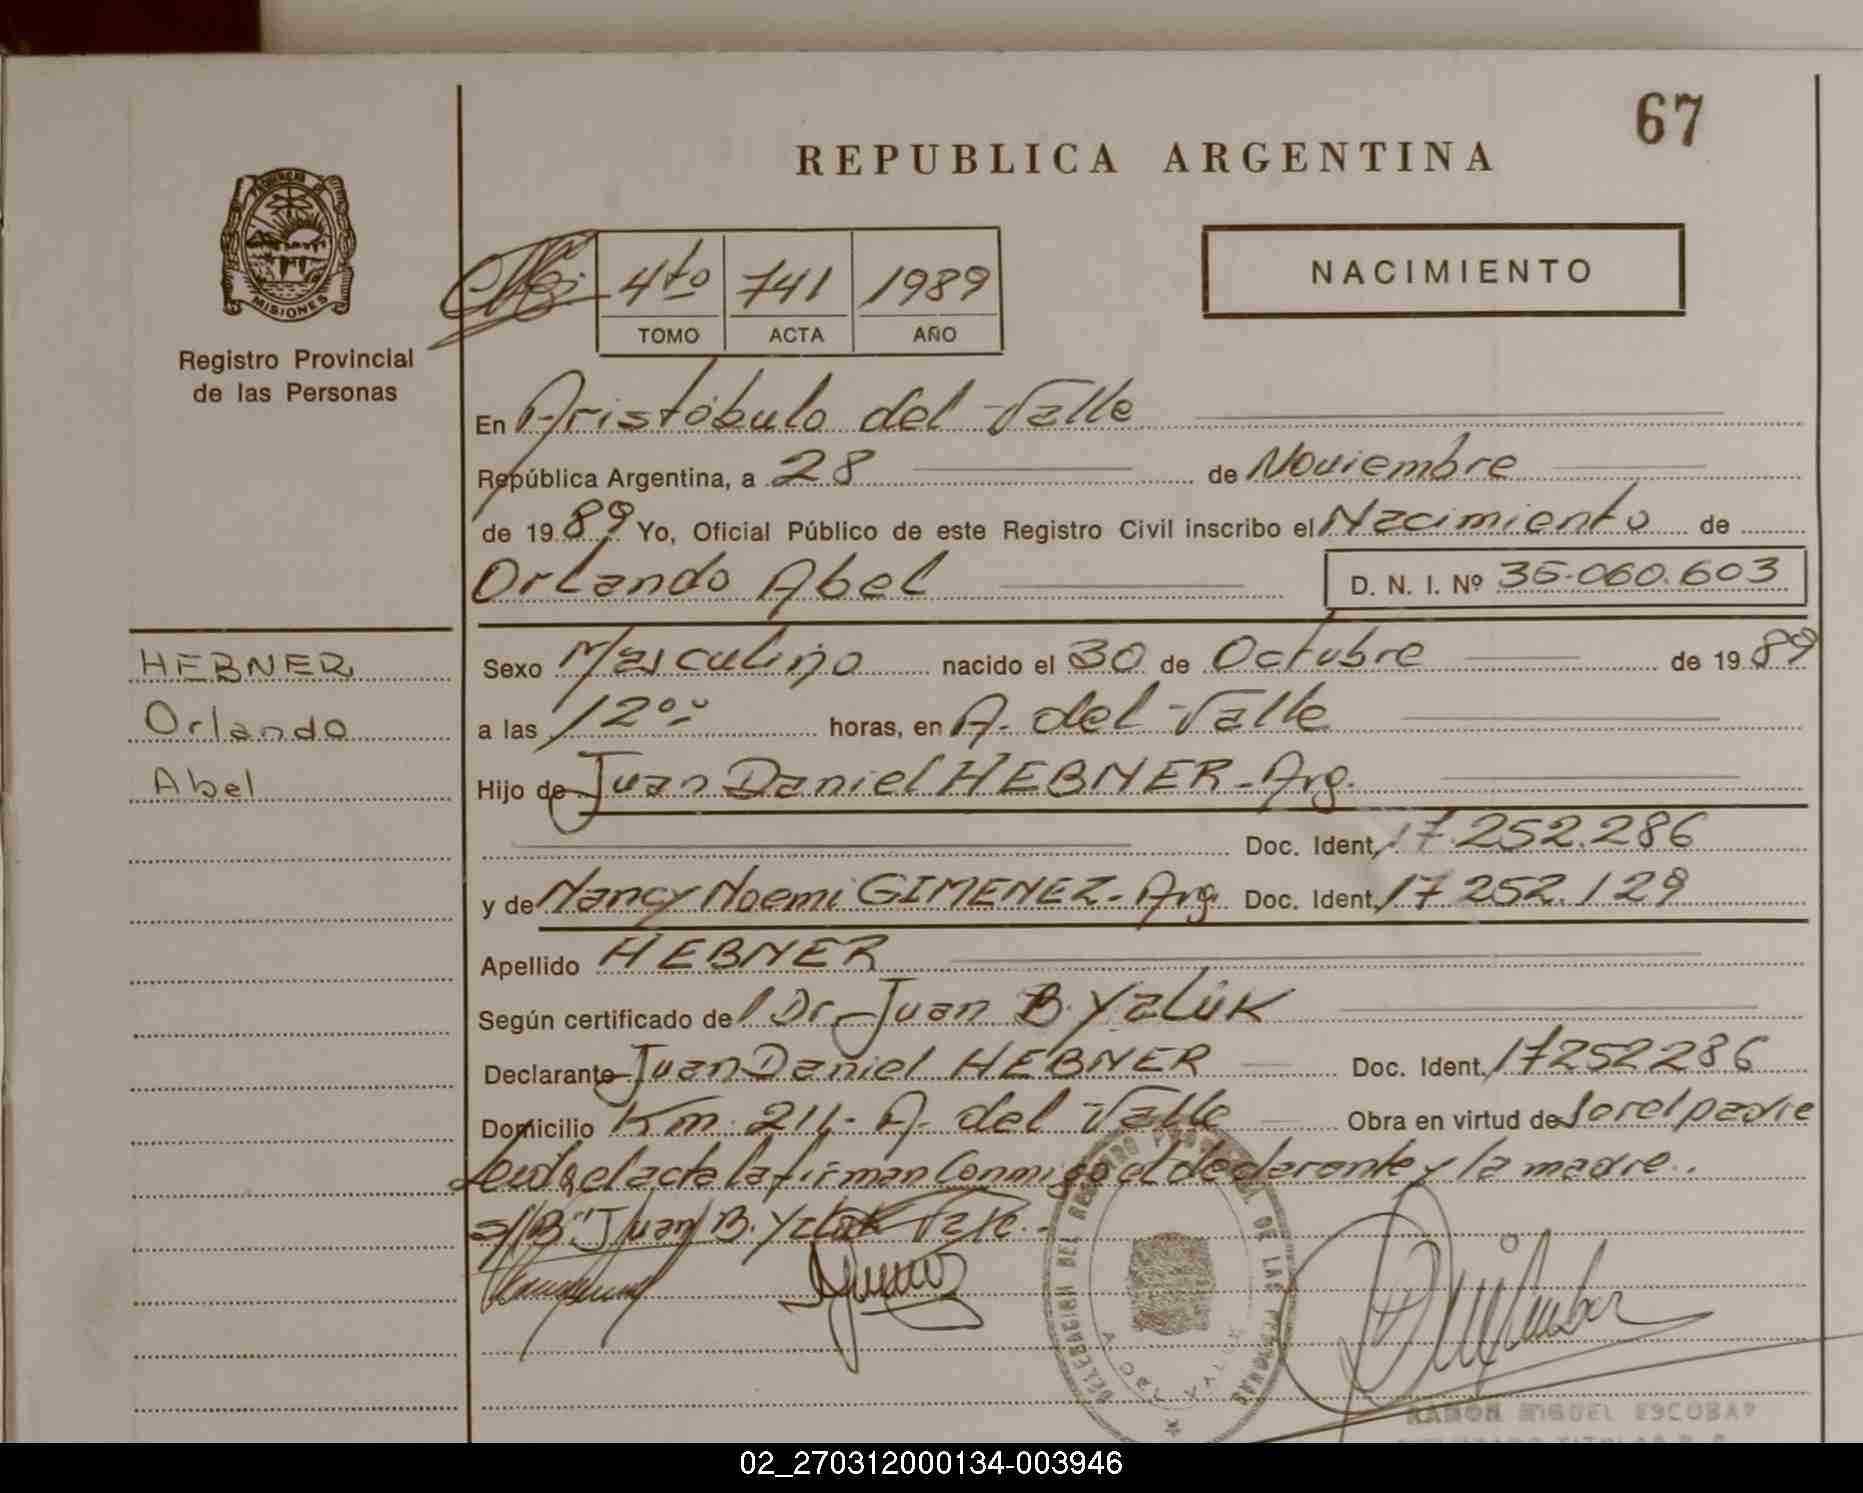 67
REPUBLICA ARGENTINA
MISIONES
Registro Provincial
de las Personas
4to 741 1989
TOMO ACTA AÑO
NACIMIENTO
En Aristóbulo del Valle
República Argentina, a 28 de Noviembre
de 1989 Yo, Oficial Público de este Registro Civil inscribo el Nacimiento de
Orlando Abel D. N. I. Nº 35.060.603
HEBNER
Orlando
Abel
Sexo Masculino nacido el 30 de Octubre de 1989
a las 12 horas, en A. del Valle
Hijo de Juan Daniel HEBNER - Arg.
Doc. Ident. 17.252.286
y de Nancy Noemi GIMENEZ - Arg. Doc. Ident. 17 252.129
Apellido HEBNER
Según certificado del Dr. Juan B. Yaluk
Declarante Juan Daniel HEBNER Doc. Ident. 17252286
Domicilio Km. 211 - A. del Valle Obra en virtud de ser el padre
Leida el acta la firman conmigo el declarante y la madre.
s/B "Juan B. Yaluk Vale.
DELEGACION DEL REGISTRO PROVINCIAL DE LAS PERSONAS
A. DEL VALLE
RAMON MIGUEL ESCOBAR
02_270312000134-003946